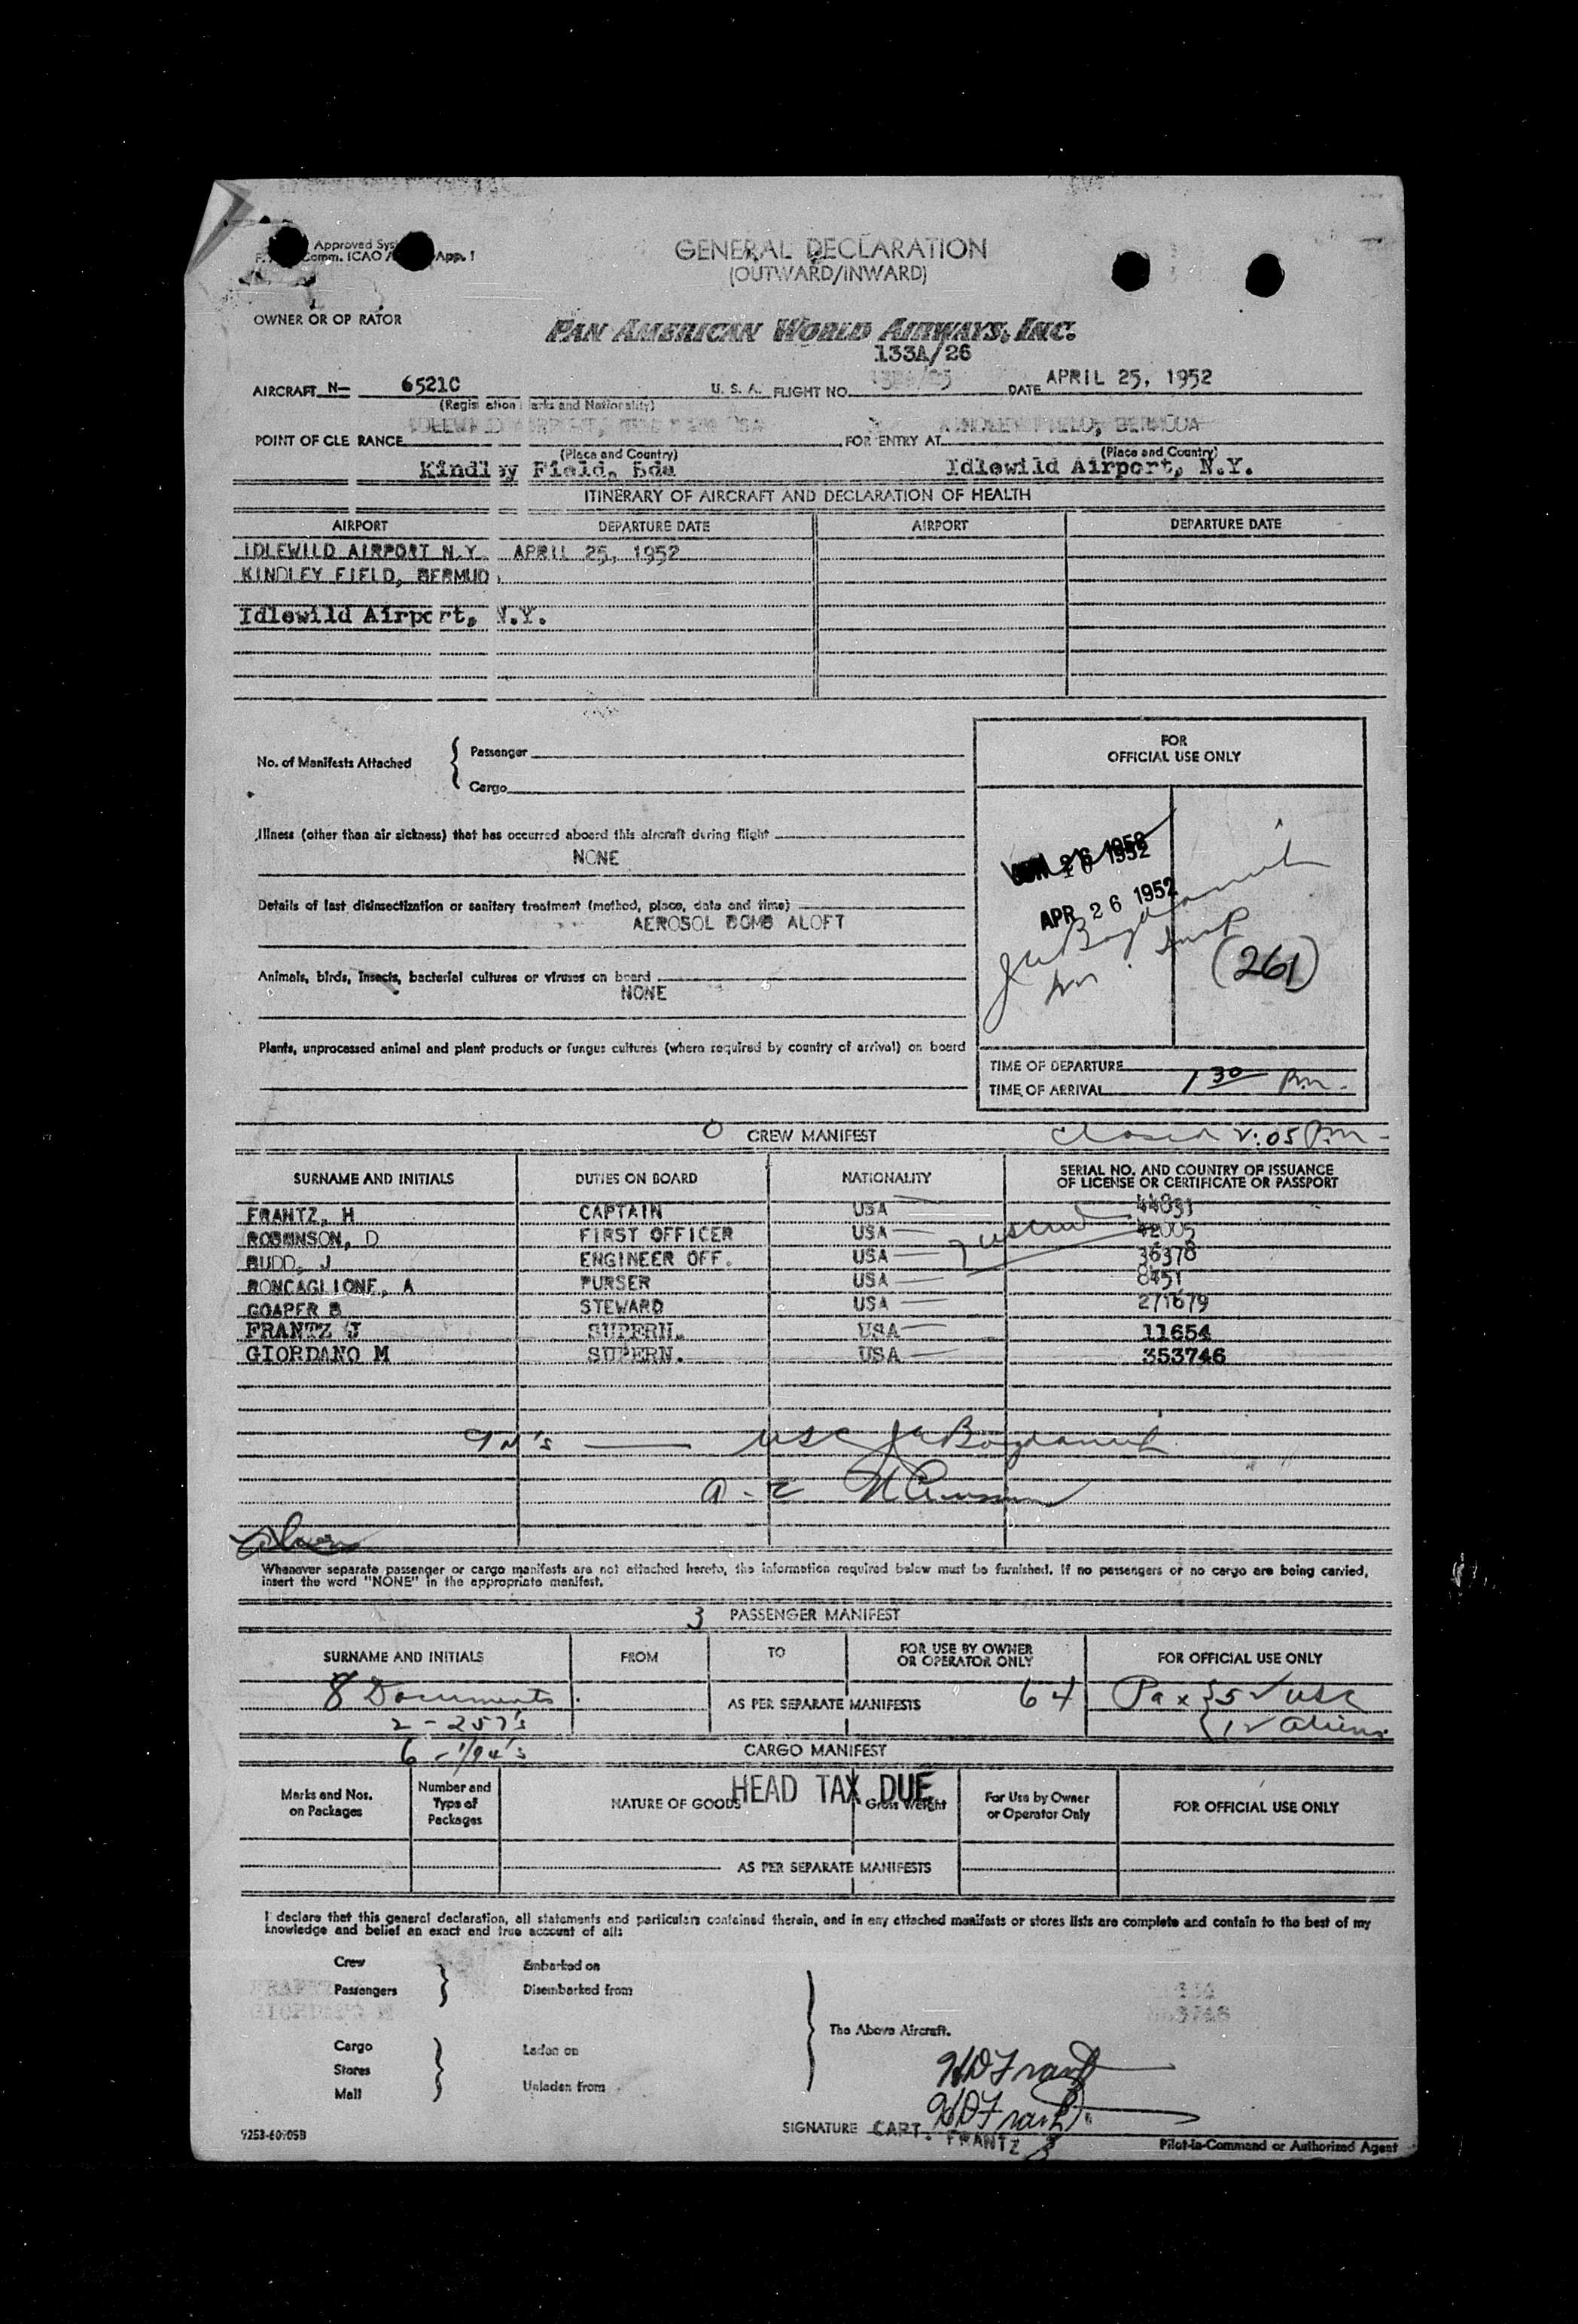 Approved Sys
Comm. ICAO / App. 1
GENERAL DECLARATION
(OUTWARD/INWARD)
OWNER OR OP RATOR
PAN AMERICAN WORLD AIRWAYS, INC.
133A/26
AIRCRAFT N— 6521C U. S. A. FLIGHT NO. DATE APRIL 25, 1952
(Regis ation arks and Nationality)
IDLEWILD AIRPORT, KINDLEY FIELD, BERMUDA
POINT OF CLE RANCE FOR ENTRY AT
(Place and Country) (Place and Country)
Kindley Field, Bda Idlewild Airport, N.Y.
ITINERARY OF AIRCRAFT AND DECLARATION OF HEALTH
AIRPORT DEPARTURE DATE AIRPORT DEPARTURE DATE
IDLEWILD AIRPORT N.Y. APRIL 25, 1952
KINDLEY FIELD, BERMUD
Idlewild Airport, N.Y.
No. of Manifests Attached
Passenger
Cargo
Illness (other than air sickness) that has occurred aboard this aircraft during flight
NONE
Details of last disinsectization or sanitary treatment (method, place, date and time)
AEROSOL BOMB ALOFT
Animals, birds, insects, bacterial cultures or viruses on board
NONE
Plants, unprocessed animal and plant products or fungus cultures (where required by country of arrival) on board
FOR
OFFICIAL USE ONLY
APR 26 1952
(261)
TIME OF DEPARTURE
TIME OF ARRIVAL 1 30 Pm.
O CREW MANIFEST Closed 2:05 P.m.
SURNAME AND INITIALS DUTIES ON BOARD NATIONALITY SERIAL NO. AND COUNTRY OF ISSUANCE
OF LICENSE OR CERTIFICATE OR PASSPORT
FRANTZ, H CAPTAIN USA 44031
ROBINSON, D FIRST OFFICER USA 42005
BUDD, J ENGINEER OFF. USA 36378
RONCAGLIONE, A PURSER USA 8451
GOAPER B STEWARD USA 271679
FRANTZ J SUPERN. USA 11654
GIORDANO M SUPERN. USA 353746
Whenever separate passenger or cargo manifests are not attached hereto, the information required below must be furnished. If no passengers or no cargo are being carried,
insert the word "NONE" in the appropriate manifest.
3 PASSENGER MANIFEST
SURNAME AND INITIALS FROM TO FOR USE BY OWNER
OR OPERATOR ONLY FOR OFFICIAL USE ONLY
8 Documents AS PER SEPARATE MANIFESTS 64 Pax
2 - 257's
CARGO MANIFEST
HEAD TAX DUE
Marks and Nos.
on Packages
Number and
Type of
Packages
NATURE OF GOODS
Gross Weight
For Use by Owner
or Operator Only
FOR OFFICIAL USE ONLY
AS PER SEPARATE MANIFESTS
I declare that this general declaration, all statements and particulars contained therein, and in any attached manifests or stores lists are complete and contain to the best of my
knowledge and belief an exact and true account of all:
Crew Embarked on
Passengers Disembarked from
The Above Aircraft.
Cargo Laden on
Stores
Mail Unladen from
HDFrantz
HDFrantz
SIGNATURE CAPT. FRANTZ
Pilot-in-Command or Authorized Agent